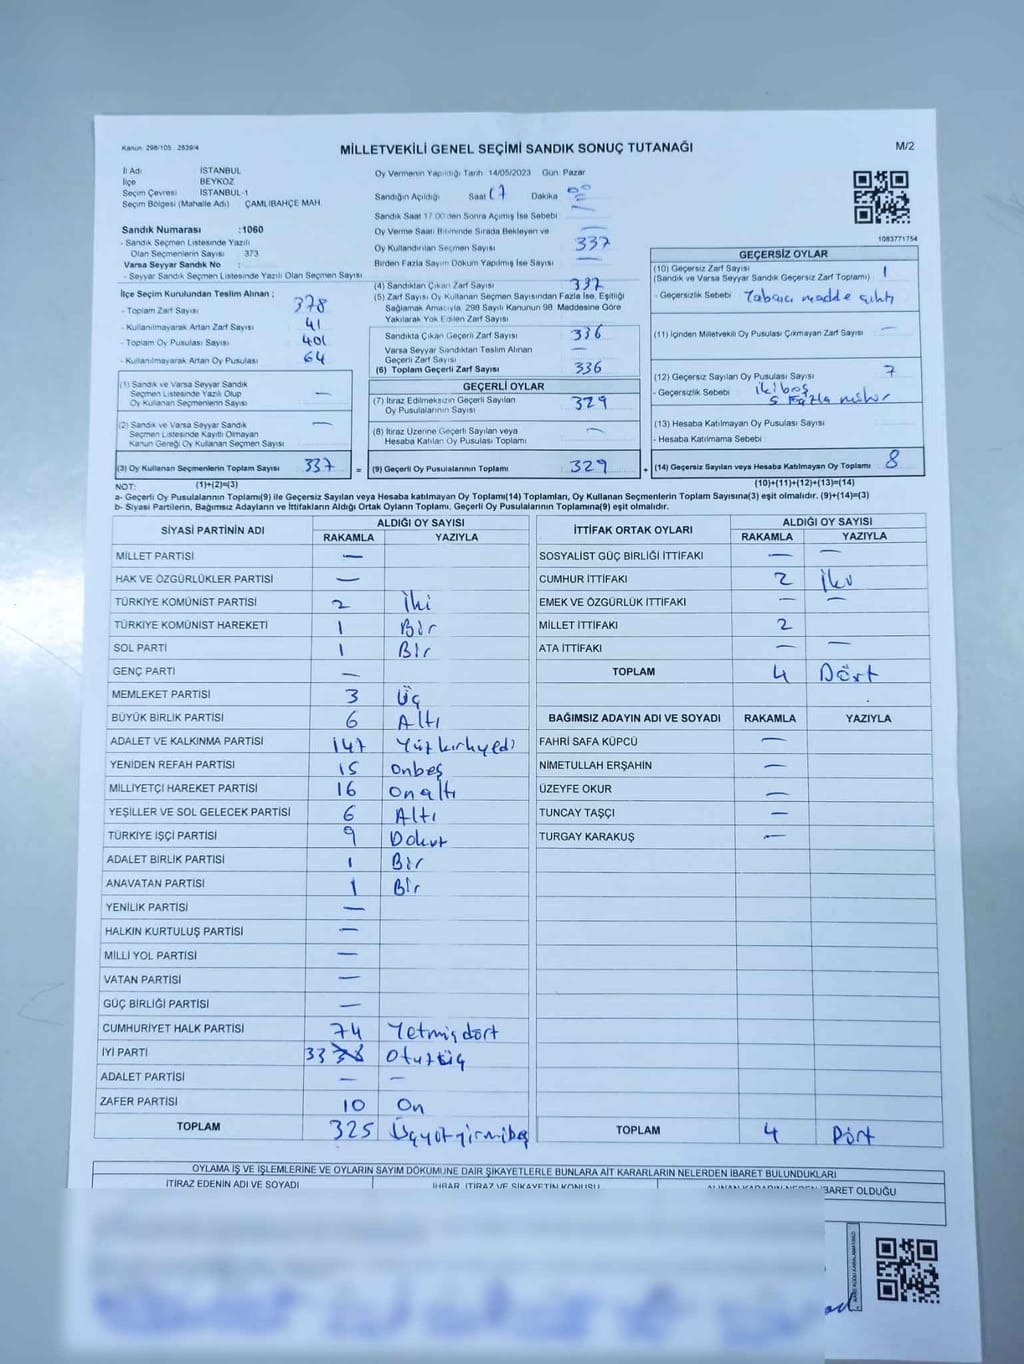 Kanun: 298/105 , 2839/4
MİLLETVEKİLİ GENEL SEÇİMİ SANDIK SONUÇ TUTANAĞI
M/2
İl Adı İSTANBUL
İlçe BEYKOZ
Seçim Çevresi İSTANBUL-1
Seçim Bölgesi (Mahalle Adı) ÇAMLIBAHÇE MAH.
Oy Vermenin Yapıldığı Tarih 14/05/2023 Gün Pazar
Sandığın Açıldığı Saat 17 Dakika 00
Sandık Saat 17:00'den Sonra Açılmış İse Sebebi —
Oy Verme Saati Bitiminde Sırada Bekleyen ve
Oy Kullandırılan Seçmen Sayısı 337
Birden Fazla Sayım Döküm Yapılmış İse Sayısı —
Sandık Numarası :1060
- Sandık Seçmen Listesinde Yazılı
Olan Seçmenlerin Sayısı : 373
Varsa Seyyar Sandık No :
- Seyyar Sandık Seçmen Listesinde Yazılı Olan Seçmen Sayısı
İlçe Seçim Kurulundan Teslim Alınan ;
- Toplam Zarf Sayısı 378
- Kullanılmayarak Artan Zarf Sayısı 41
- Toplam Oy Pusulası Sayısı 401
- Kullanılmayarak Artan Oy Pusulası 64
(1) Sandık ve Varsa Seyyar Sandık
Seçmen Listesinde Yazılı Olup
Oy Kullanan Seçmenlerin Sayısı —
(2) Sandık ve Varsa Seyyar Sandık
Seçmen Listesinde Kayıtlı Olmayan
Kanun Gereği Oy Kullanan Seçmen Sayısı —
(3) Oy Kullanan Seçmenlerin Toplam Sayısı 337 =
(1)+(2)=(3)
(4) Sandıktan Çıkan Zarf Sayısı 337
(5) Zarf Sayısı Oy Kullanan Seçmen Sayısından Fazla İse, Eşitliği
Sağlamak Amacıyla, 298 Sayılı Kanunun 98. Maddesine Göre
Yakılarak Yok Edilen Zarf Sayısı
Sandıkta Çıkan Geçerli Zarf Sayısı 336
Varsa Seyyar Sandıktan Teslim Alınan
Geçerli Zarf Sayısı —
(6) Toplam Geçerli Zarf Sayısı 336
GEÇERLİ OYLAR
(7) İtiraz Edilmeksizin Geçerli Sayılan
Oy Pusulalarının Sayısı 329
(8) İtiraz Üzerine Geçerli Sayılan veya
Hesaba Katılan Oy Pusulaları Toplamı —
(9) Geçerli Oy Pusulalarının Toplamı 329 +
1083771754
GEÇERSİZ OYLAR
(10) Geçersiz Zarf Sayısı 1
(Sandık ve Varsa Seyyar Sandık Geçersiz Zarf Toplamı)
- Geçersizlik Sebebi Yabancı madde çıktı
(11) İçinden Milletvekili Oy Pusulası Çıkmayan Zarf Sayısı —
(12) Geçersiz Sayılan Oy Pusulası Sayısı 7
- Geçersizlik Sebebi iki boş
5 Fazla mühür
(13) Hesaba Katılmayan Oy Pusulası Sayısı
- Hesaba Katılmama Sebebi
(14) Geçersiz Sayılan veya Hesaba Katılmayan Oy Toplamı 8
(10)+(11)+(12)+(13)=(14)
NOT:
a- Geçerli Oy Pusulalarının Toplamı(9) ile Geçersiz Sayılan veya Hesaba katılmayan Oy Toplamı(14) Toplamları, Oy Kullanan Seçmenlerin Toplam Sayısına(3) eşit olmalıdır. (9)+(14)=(3)
b- Siyasi Partilerin, Bağımsız Adayların ve İttifakların Aldığı Ortak Oyların Toplamı, Geçerli Oy Pusulalarının Toplamına(9) eşit olmalıdır.
SİYASİ PARTİNİN ADI ALDIĞI OY SAYISI
RAKAMLA YAZIYLA
MİLLET PARTİSİ —
HAK VE ÖZGÜRLÜKLER PARTİSİ —
TÜRKİYE KOMÜNİST PARTİSİ 2 İki
TÜRKİYE KOMÜNİST HAREKETİ 1 Bir
SOL PARTİ 1 Bir
GENÇ PARTİ —
MEMLEKET PARTİSİ 3 Üç
BÜYÜK BİRLİK PARTİSİ 6 Altı
ADALET VE KALKINMA PARTİSİ 147 Yüzkırkyedi
YENİDEN REFAH PARTİSİ 15 onbeş
MİLLİYETÇİ HAREKET PARTİSİ 16 onaltı
YEŞİLLER VE SOL GELECEK PARTİSİ 6 Altı
TÜRKİYE İŞÇİ PARTİSİ 9 Dokuz
ADALET BİRLİK PARTİSİ 1 Bir
ANAVATAN PARTİSİ 1 Bir
YENİLİK PARTİSİ —
HALKIN KURTULUŞ PARTİSİ —
MİLLİ YOL PARTİSİ —
VATAN PARTİSİ —
GÜÇ BİRLİĞİ PARTİSİ —
CUMHURİYET HALK PARTİSİ 74 Yetmişdört
İYİ PARTİ 33 Otuzüç
ADALET PARTİSİ — —
ZAFER PARTİSİ 10 On
TOPLAM 325 Üçyüzyirmibeş
İTTİFAK ORTAK OYLARI ALDIĞI OY SAYISI
RAKAMLA YAZIYLA
SOSYALİST GÜÇ BİRLİĞİ İTTİFAKI — —
CUMHUR İTTİFAKI 2 İki
EMEK VE ÖZGÜRLÜK İTTİFAKI — —
MİLLET İTTİFAKI 2
ATA İTTİFAKI — —
TOPLAM 4 Dört
BAĞIMSIZ ADAYIN ADI VE SOYADI RAKAMLA YAZIYLA
FAHRİ SAFA KÜPCÜ —
NİMETULLAH ERŞAHİN —
ÜZEYFE OKUR —
TUNCAY TAŞÇI —
TURGAY KARAKUŞ —
TOPLAM 4 Dört
OYLAMA İŞ VE İŞLEMLERİNE VE OYLARIN SAYIM DÖKÜMÜNE DAİR ŞİKAYETLERLE BUNLARA AİT KARARLARIN NELERDEN İBARET BULUNDUKLARI
İTİRAZ EDENİN ADI VE SOYADI İHBAR, İTİRAZ VE ŞİKAYETİN KONUSU ALINAN KARARIN NEDEN İBARET OLDUĞU